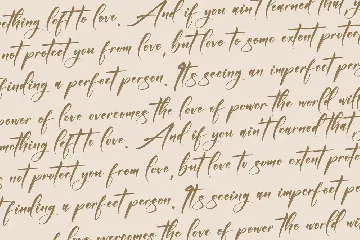 ething left to love. And if you ain't learned that,
not protect you from love, but love to some extent protec
finding a perfect person. It's seeing an imperfect pers
power of love overcomes the love of power the world will
mething left to love. And if you ain't learned that
not protect you from love, but love to some extent prote
finding a perfect person. It's seeing an imperfect p
power of love overcomes the love of power the world wi